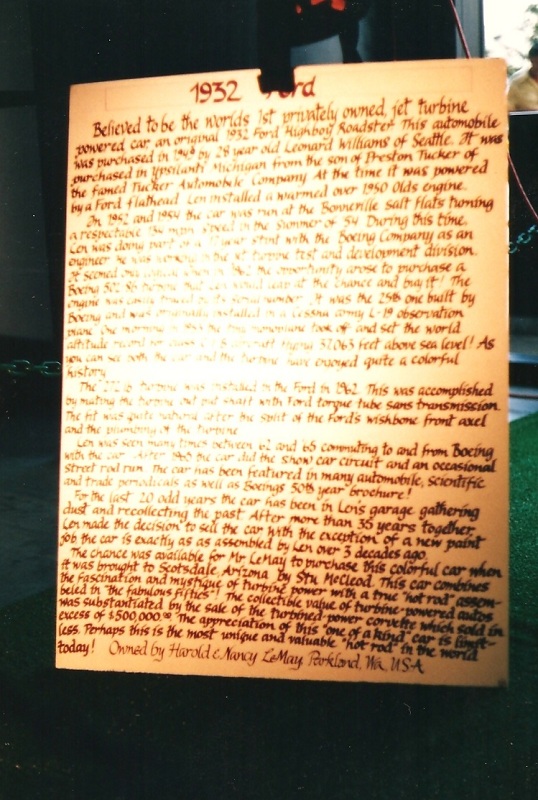 1932 Ford
Believed to be the worlds 1st privately owned, jet turbine
powered car, an original 1932 Ford Highboy Roadster. This automobile
was purchased in 1949 by 28 year old Leonard Williams of Seattle. It was
purchased in Ypsilanti Michigan from the son of Preston Tucker of
the famed Tucker Automobile Company. At the time it was powered
by a Ford flathead. Len installed a warmed over 1950 Olds engine.
In 1952 and 1954 the car was run at the Bonneville Salt Flats turning
a respectable 134 mph speed in the summer of '54. During this time,
Len was doing part of a year stint with the Boeing Company as an
engineer he was working in the jet turbine test and development division.
It seemed only logical when in 1962 the opportunity arose to purchase a
Boeing 502 turbine that Len would leap at the chance and buy it! The
engine was easily traced by its serial number. It was the 25th one built by
Boeing and was originally installed in a Cessna army L-19 observation
plane. One morning in 1953 the tiny monoplane took off and set the world
altitude record for class aircraft flying 37,063 feet above sea level! As
you can see both the car and the turbine have enjoyed quite a colorful
history.
The turbine was installed in the Ford in 1962. This was accomplished
by mating the turbine out put shaft with Ford torque tube sans transmission.
The fit was quite natural after the split of the Ford's wishbone front axel
and the plumbing of the turbine.
Len was seen many times between 62 and 65 commuting to and from Boeing
with the car. After 1965 the car did the show car circuit and an occasional
street rod run. The car has been featured in many automobile, scientific
and trade periodicals as well as Boeings 50th year brochure!
For the last 20 odd years the car has been in Len's garage gathering
dust and recollecting the past. After more than 35 years together,
Len made the decision to sell the car with the exception of a new paint
job, the car is exactly as as assembled by Len over 3 decades ago.
The chance was available for Mr LeMay to purchase this colorful car when
it was brought to Scotsdale, Arizona by Stu McCleod. This car combines
the fascination and mystique of turbine power with a true "hot rod" assem-
beled in "the fabulous fifties"! The collectible value of turbine-powered autos
was substantiated by the sale of the turbined-power corvette which sold in
excess of $500,000.00 The appreciation of this "one of a kind" car is limit-
less. Perhaps this is the most unique and valuable "hot rod" in the world
today! Owned by Harold & Nancy LeMay, Parkland, Wa. U.S.A